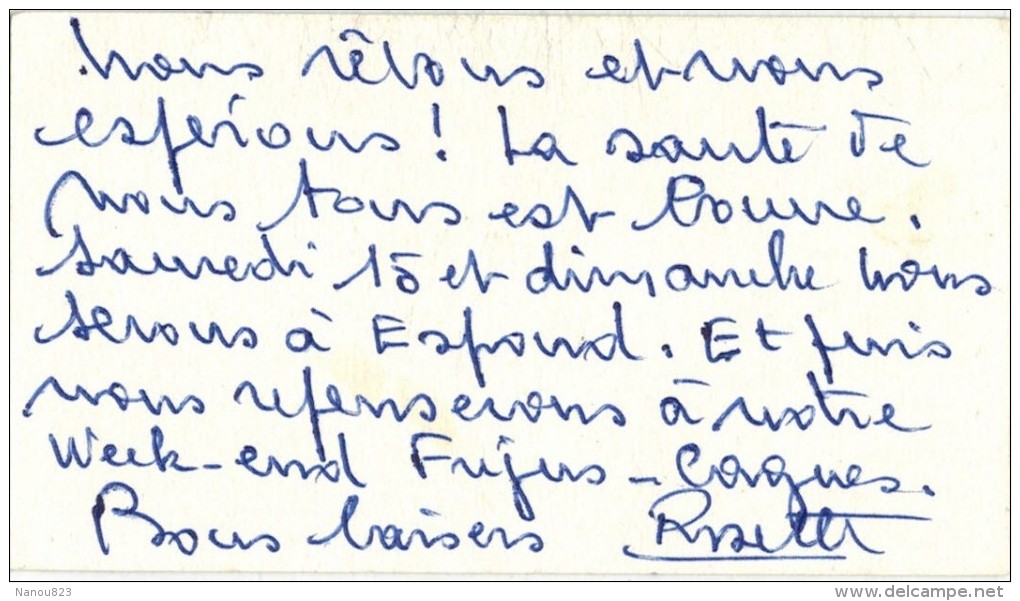 nous rêvons et nous
espérons ! La santé de
nous tous est bonne.
Samedi 15 et dimanche nous
serons à Espond. Et puis
nous repenserons à notre
Week-end Fréjus - Cagnes.
Bons baisers Rosette
Nanou823
www.delcampe.net